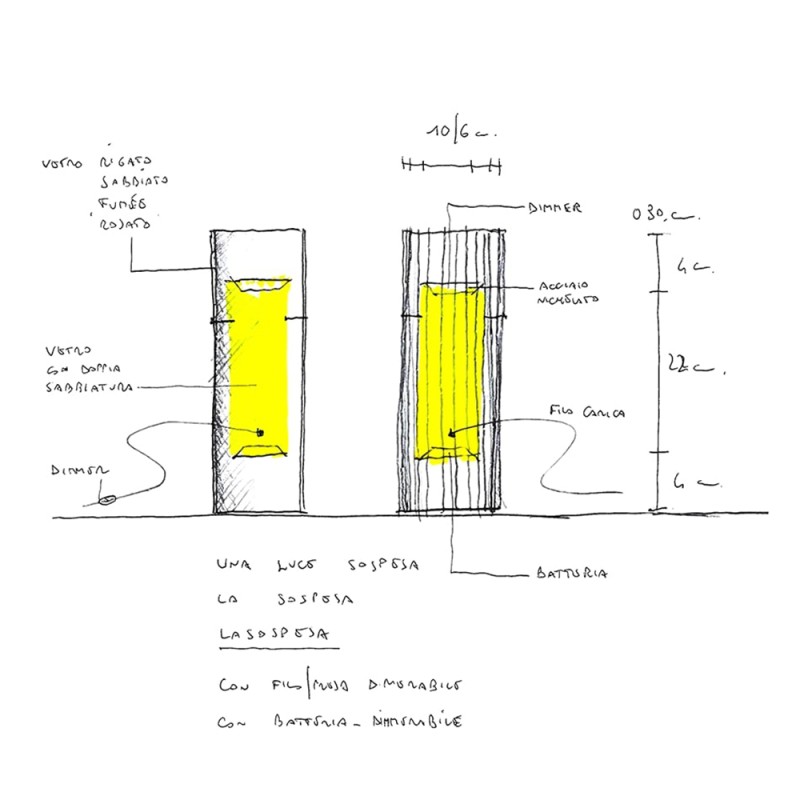 10/6 c.
VETRO RIGATO
SABBIATO
FUMÉE
ROSATO
DIMMER
030 c.
4 c.
ACCIAIO
VETRO
CON DOPPIA
SABBIATURA
22 c.
FILO CARICA
DIMMER
4 c.
UNA LUCE SOSPESA
BATTERIA
LA SOSPESA
LASOSPESA
CON FILO/PRESA DIMERABILE
CON BATTERIA - DIMMERABILE